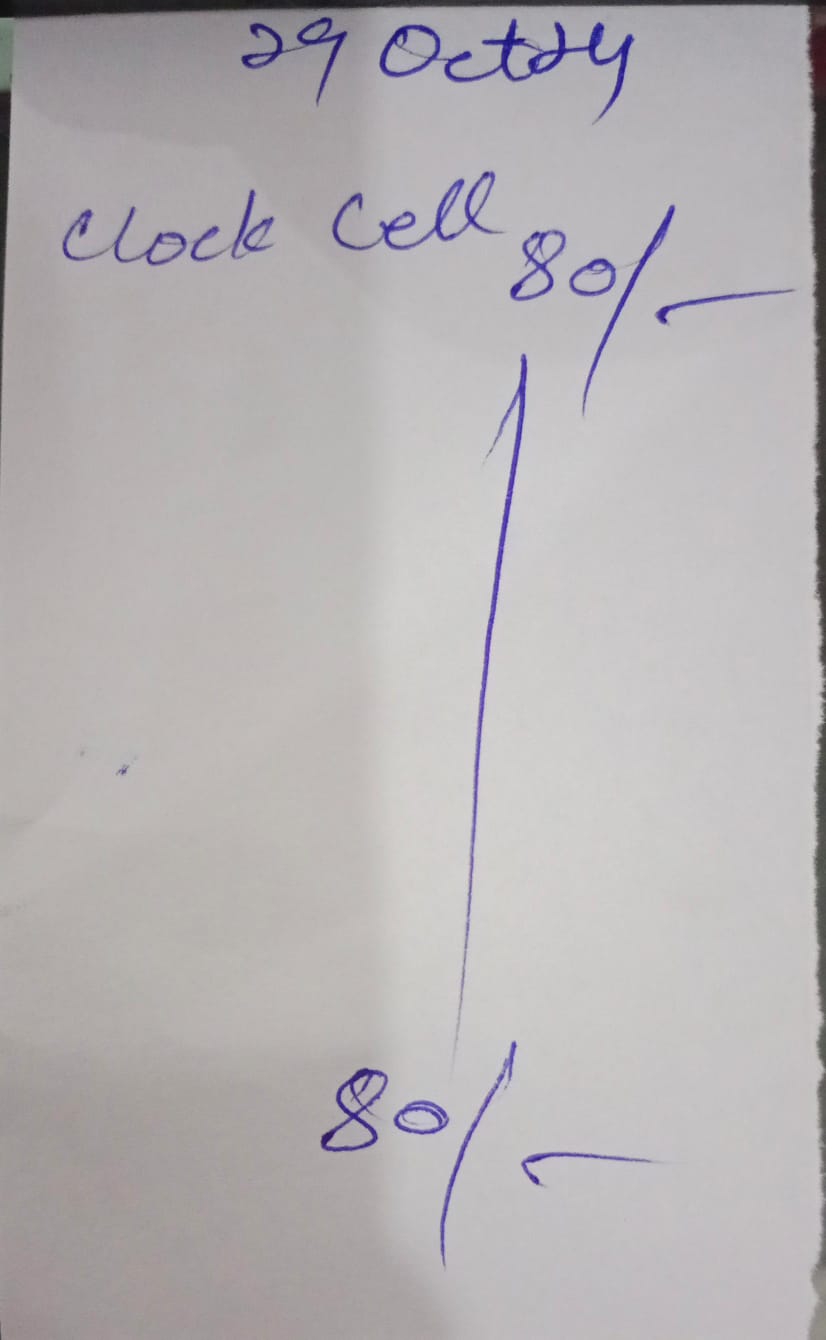 29 Oct 24
Clock Cell 80/-
80/-